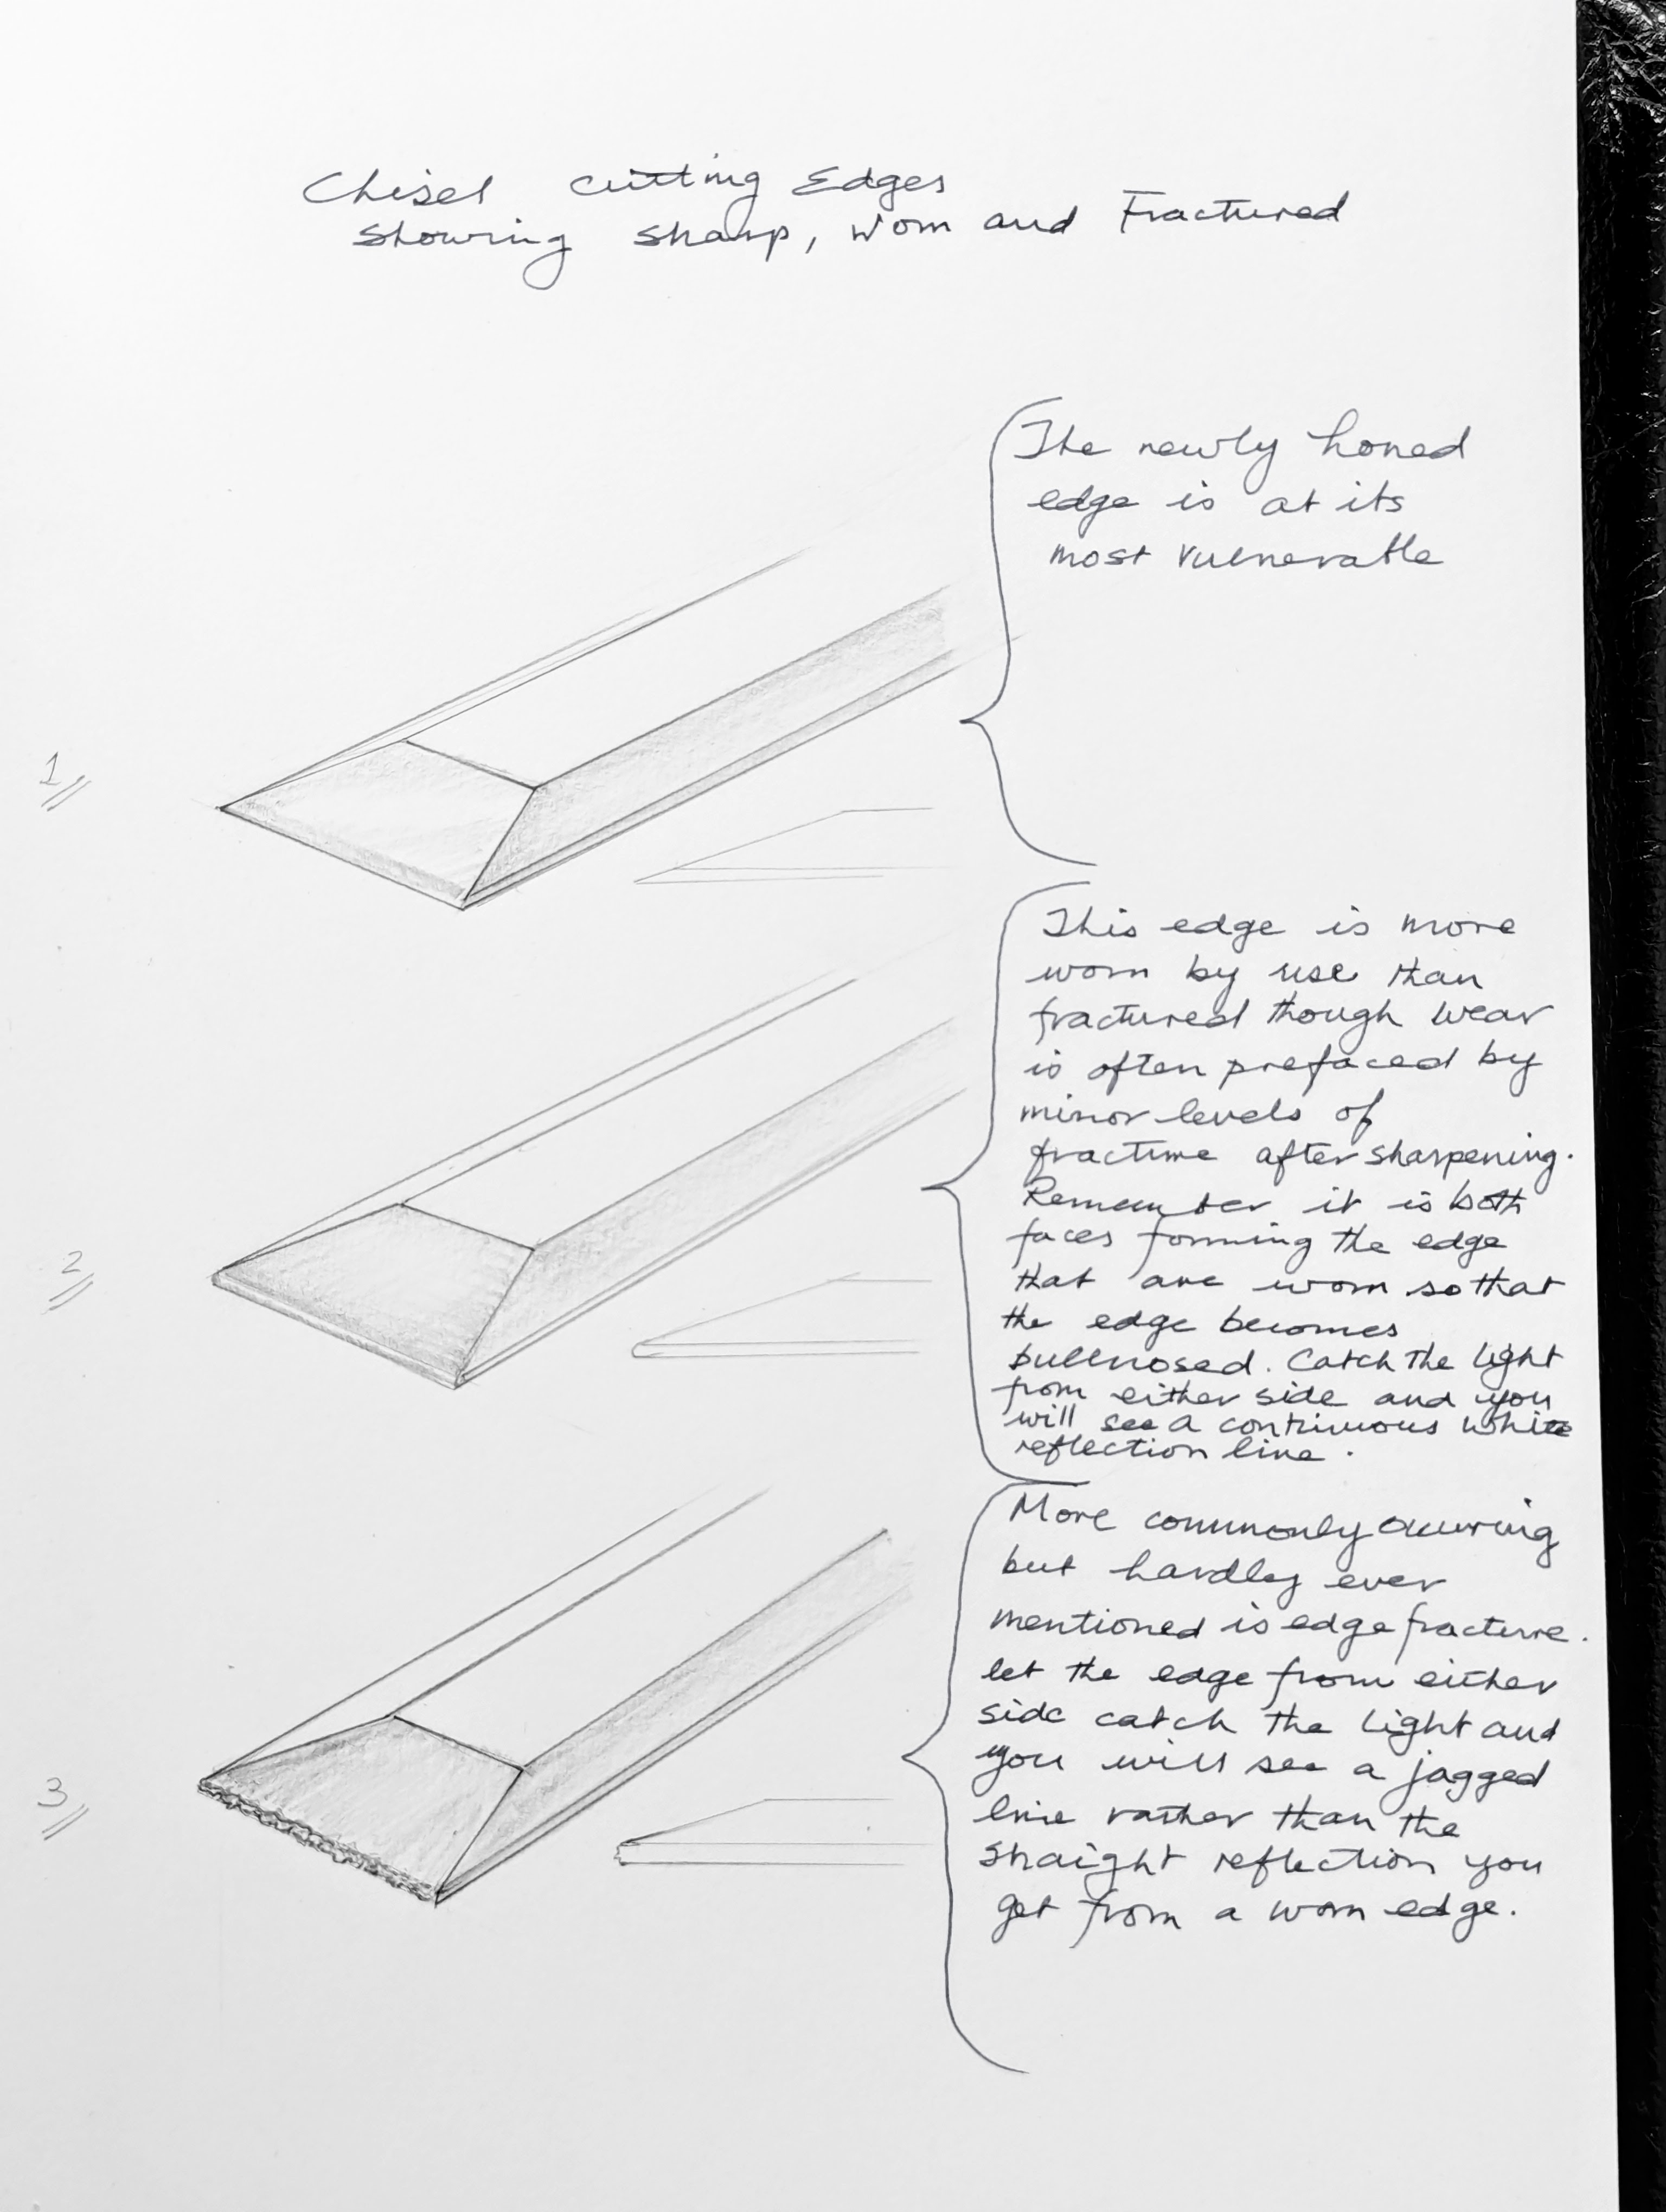 Chisel cutting Edges
Showing sharp, worn and Fractured
The newly honed
edge is at its
most vulnerable
1
This edge is more
worn by use than
fractured though wear
is often prefaced by
minor levels of
fracture after sharpening.
Remember it is both
faces forming the edge
that are worn so that
the edge becomes
bullnosed. Catch the light
from either side and you
will see a continuous white
reflection line.
2
More commonly occuring
but hardley ever
mentioned is edge fracture.
let the edge from either
side catch the light and
you will see a jagged
line rather than the
straight reflection you
get from a worn edge.
3